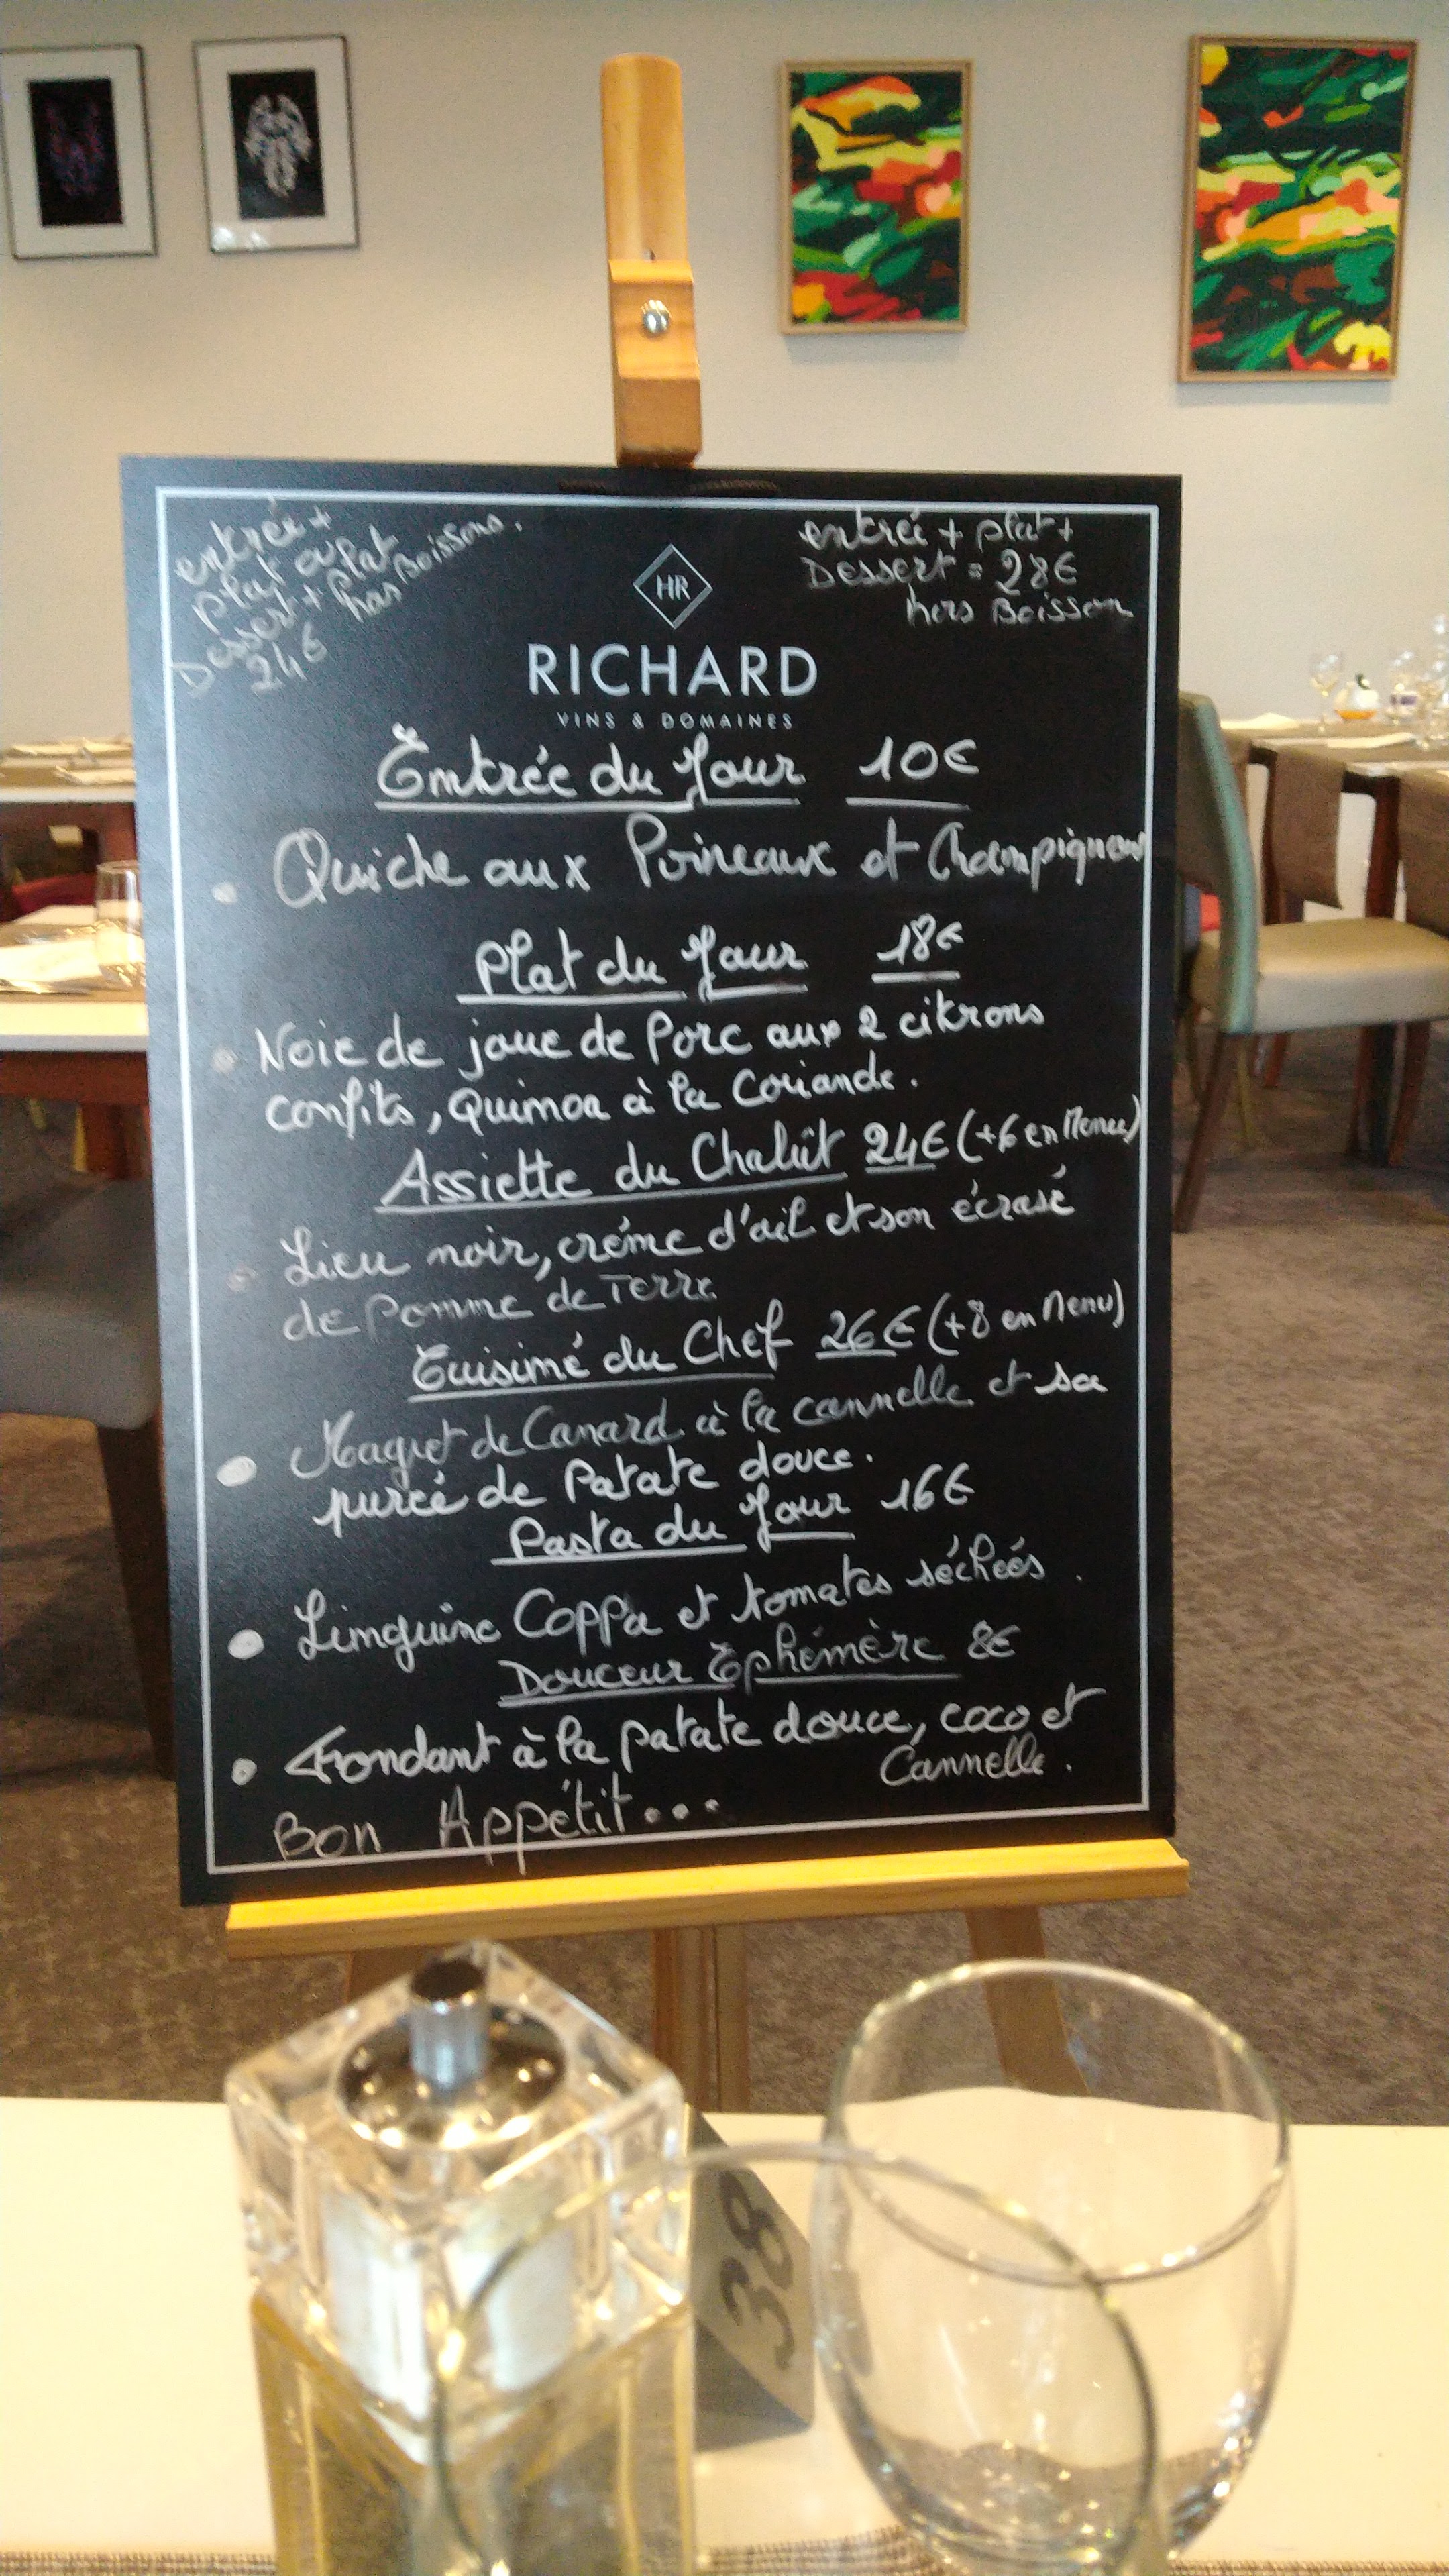 entrée +
plat ou plat
Dessert + hors Boissons.
24€
entrée + plat +
Dessert = 28€
hors Boisson
HR
RICHARD
VINS & DOMAINES
Entrée du Jour 10€
• Quiche aux Poireaux et Champignons
Plat du Jour 18€
• Noie de joue de Porc aux 2 citrons
confits, Quinoa à la Coriande.
Assiette du Chalut 24€ (+6 en Menu)
• Lieu noir, crème d'ail et son écrasé
de Pomme de Terre
Cuisiné du Chef 26€ (+8 en Menu)
• Magret de Canard à la cannelle et sa
purée de Patate douce.
Pasta du Jour 16€
• Linguine Coppa et tomates séchées.
Douceur Ephémère 8€
• Fondant à la patate douce, coco et
Cannelle.
Bon Appétit...
38